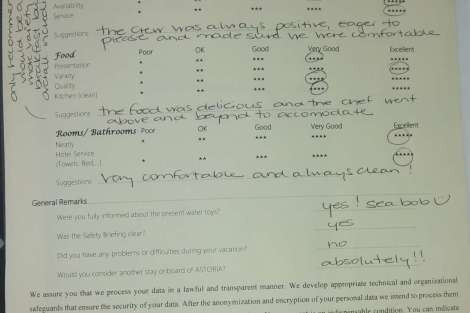 only recommen
would be a
more variety
breakfast bu
overall incredi
Availability * ** *** **** *****
Service * ** *** **** *****
Suggestions: the crew was always positive, eager to
please and made sure we were comfortable
Food Poor OK Good Very Good Excellent
Presentation * ** *** **** *****
Variety * ** *** **** *****
Quality * ** *** **** *****
Kitchen (clean) * ** *** **** *****
Suggestions: the food was delicious and the chef went
above and beyond to accomodate
Rooms/ Bathrooms Poor OK Good Very Good Excellent
Neatly * ** *** **** *****
Hotel Service * ** *** **** *****
(Towels, Bed,..)
Suggestions: Very comfortable and always clean!
General Remarks
Were you fully informed about the present water toys? yes! seabob
Was the Safety Briefing clear? yes
Did you have any problems or difficulties during your vacation? no
Would you consider another stay on board of ASTORIA? absolutely!!
We assure you that we process your data in a lawful and transparent manner. We develop appropriate technical and organizational
safeguards that ensure the security of your data. After the anonymization and encryption of your personal data we intend to process them
condition. You can indicate